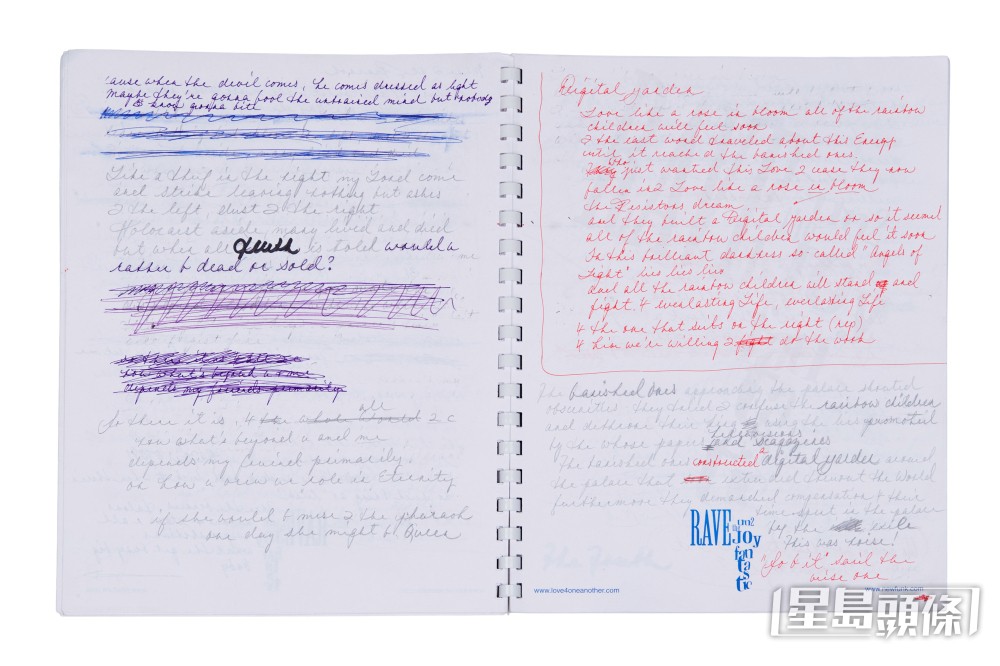 'cause when the devil comes, he comes dressed as light
Maybe they're gonna fool the unbraised mind but nobody
is gonna bite
Like a thief in the night my Lord come
and strike leaving nothing but ashes
2 the left, dust 2 the right
Holocaust aside, many lived and died
but when all truth is told would u
rather b dead or sold?
now what's beyond u & me
depends my friends primarily
So there it is, 4 all 2 c
now what's beyond u and me
depends my friend primarily
on how u view ur role in Eternity
if she would b mine & the pharaoh
one day she might b Queen
Digital Garden
Love like a rose in bloom all of the rainbow
children will feel soon
2 the east word traveled about this Energy
until it reached the banished ones,
who just wanted this Love 2 cease they now
fallen in2 Love like a rose in bloom
the Resistors dream
and they built a Digital Garden or so it seemed
all of the rainbow children would feel it soon
In this brilliant darkness so called "Angels of
Light" lies lies lies
But all the rainbow children will stand and
fight 4 everlasting Life, everlasting Life
4 the one that sits on the right (rep)
4 him we're willing 2 fight do the work
The banished ones approaching the palace shouted
obscenities. They tried 2 confuse the rainbow children
and dethrone their king using the lies promoted
by the whose papers, televisions and magazines
The banished ones constructed a digital garden around
the palace that extended thruout the World
furthermore they demanded compensation 4 their
time spent in the palace
by the exile
This was noise!
"So b it" said the
wise one
RAVE
un2
Joy
fan
tas
tic
The Truth
www.love4oneanother.com
www.newfunk.com
星島頭條